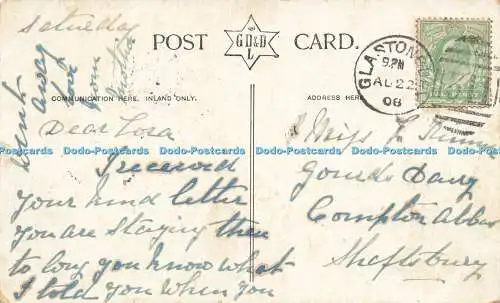 Saturday
POST CARD.
G D & D
L
COMMUNICATION HERE, INLAND ONLY.
ADDRESS HERE
GLASTONBURY
9.PM
AU 22
08
went away
love from
mother
Dear Lora
I received
your kind letter
you are staying then
to long you know what
I told you when you
Miss L
Gourds Dairy
Compton Abbas
Sheftsbury
Dodo-Postcards Dodo-Postcards Dodo-Postcards Dodo-Postcards Dodo-Postcards